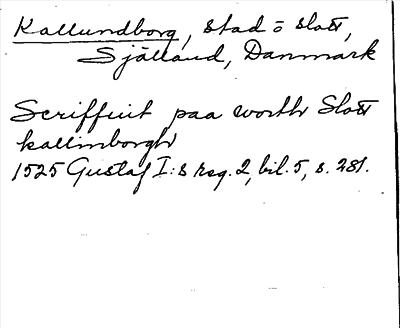 Kallundborg, stad o slott,
Själland, Danmark
Scriffuit paa worth Slott
kallinborgh
1525 Gustaf I:s reg. 2, bil. 5, s. 281.